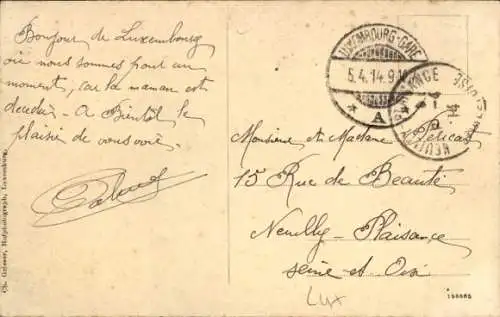 Bonjour de Luxembourg
où nous sommes pour un
moment, car la maman est
A Bientôt le
plaisir de vous voir.
LUXEMBOURG-GARE
5.4.14.9
A
Monsieur et Madame
15 Rue de Beauté
Neuilly-Plaisance
Seine et Oise
Lux
Ch. Grieser, Hofphotograph, Luxemburg.